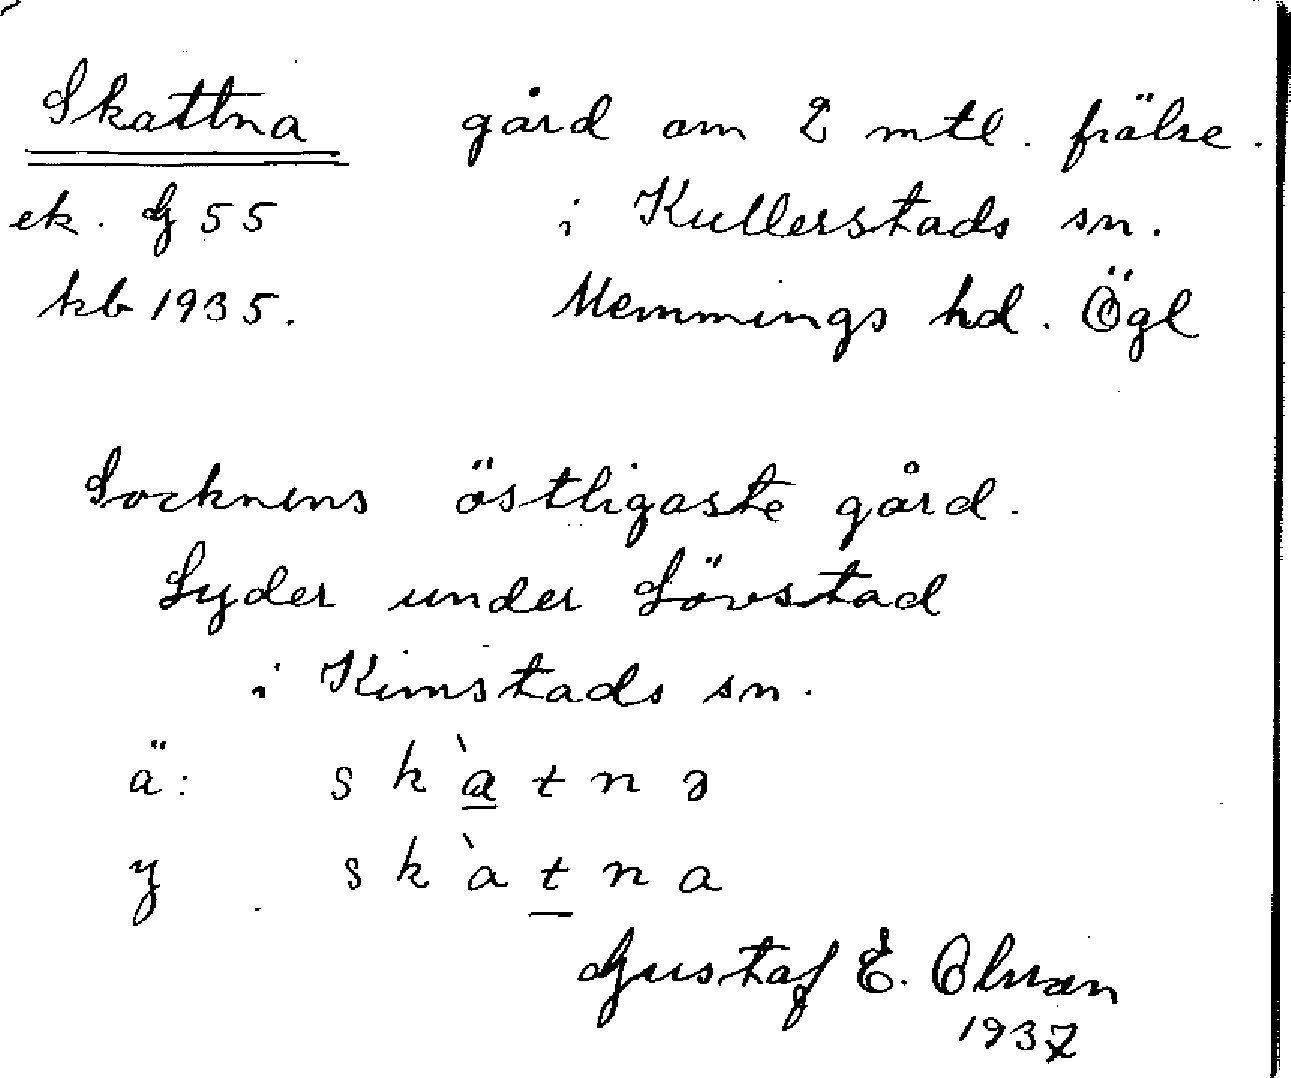 Skattna gård om 2 mtl. frälse.
ek. G 55 i Kullerstads sn.
kb 1935. Memmings hd. Ögl
Socknens östligaste gård.
Lyder under Lövstad
i Kimstads sn.
ä: sk`atnə
y sk`atna
Gustaf E. Olsson
1937